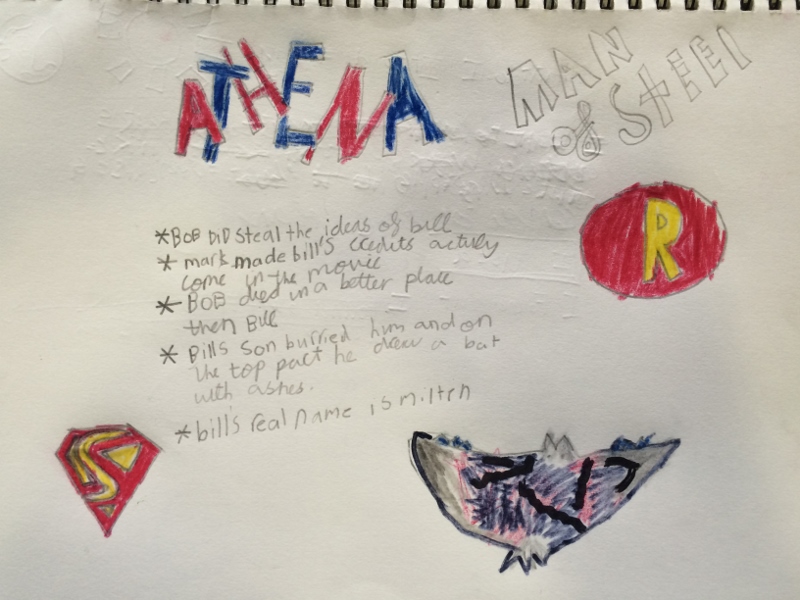 ATHENA
MAN
of STEEL
R
*BOB DID Steal the ideas of bill
* mark made bill's credits actuly
come in the movie
* BOB died in a better place
then Bill
* Bills son burried him and on
the top part he drew a bat
with ashes.
*bill's real name is miltrn
S